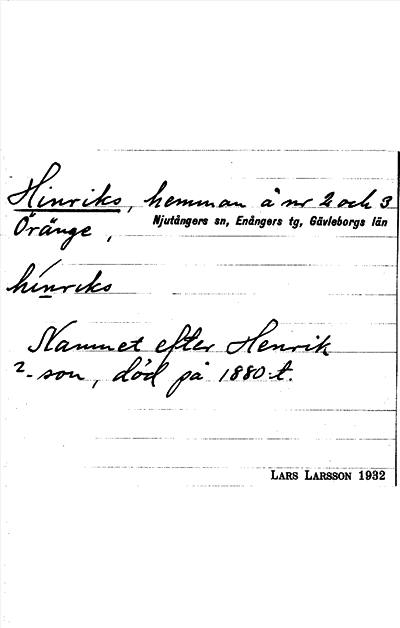 Hinriks, hemman å nr 2 och 3
Öränge, Njutångers sn, Enångers tg, Gävleborgs län
hínriks
Namnet efter Henrik
-son, död på 1880-t.
LARS LARSSON 1932